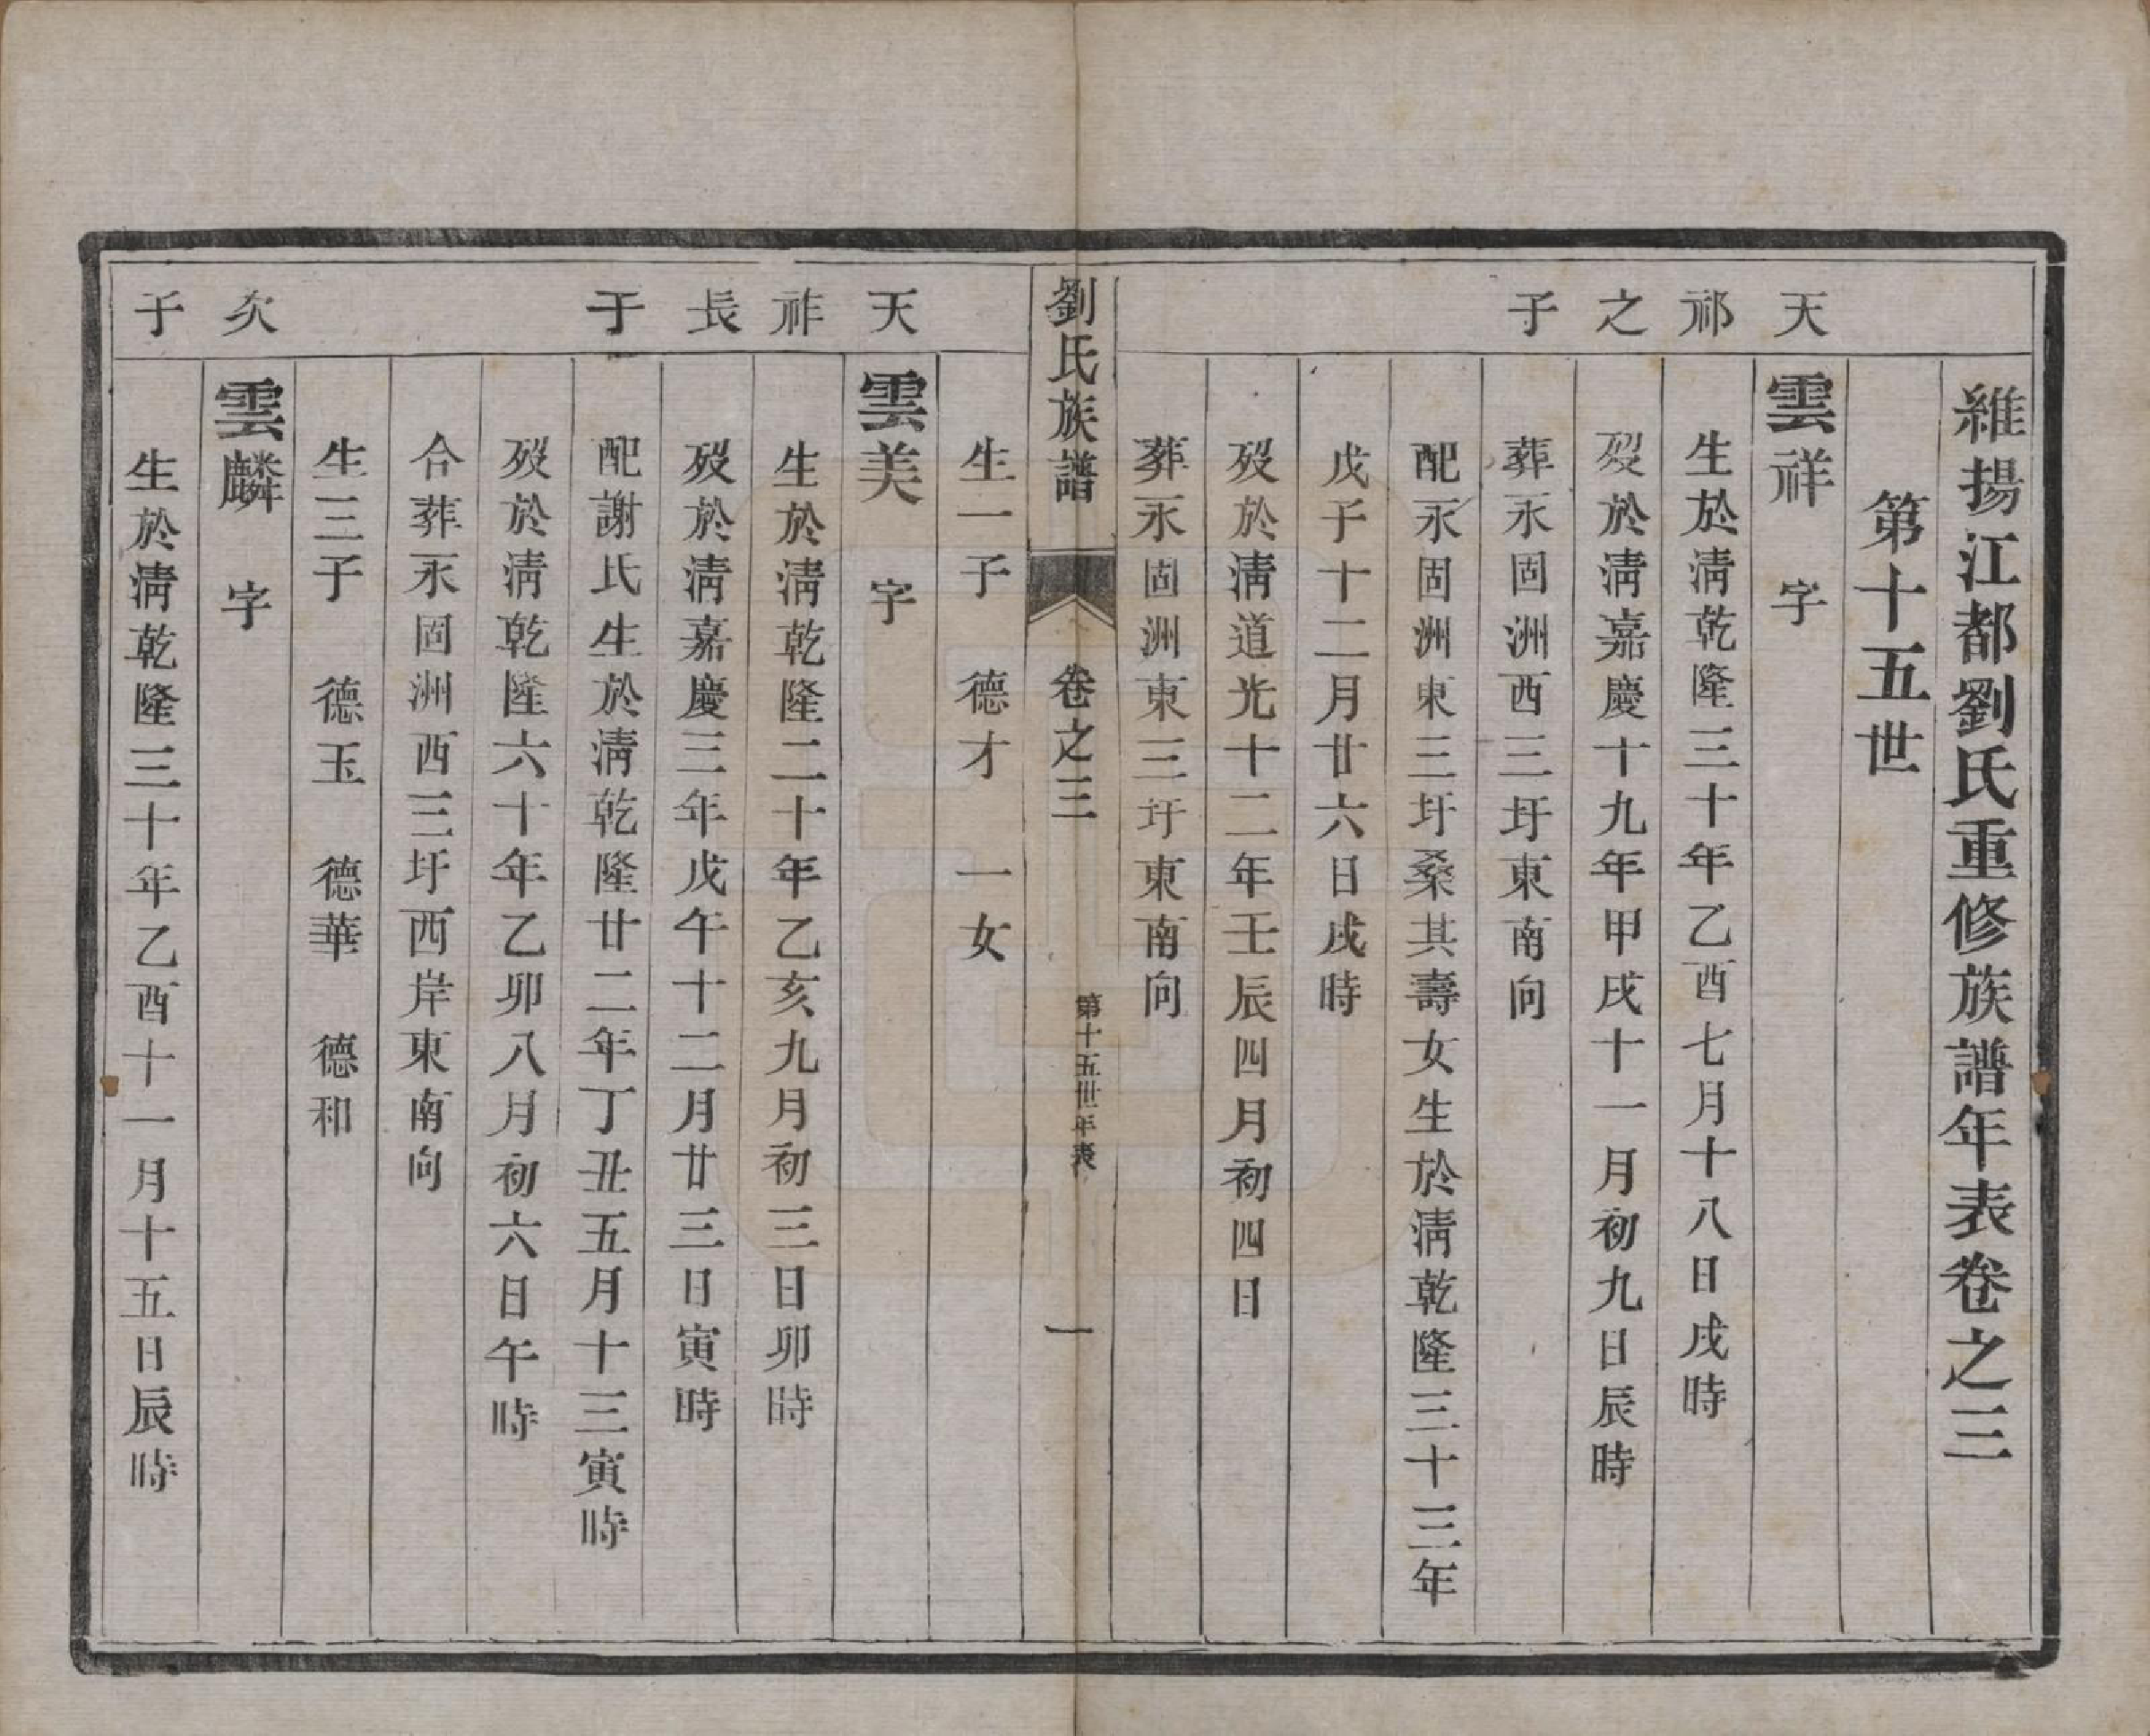 維揚江都劉氏重修族譜年表卷之三
第十五世
天祁之子
雲祥 字
生於淸乾隆三十年乙酉七月十八日戌時
歿於淸嘉慶十九年甲戌十一月初九日辰時
葬永固洲西三圩東南向
配永固洲東三圩桑其壽女生於淸乾隆三十三年
戊子十二月廿六日戌時
歿於淸道光十二年壬辰四月初四日
葬永固洲東三圩東南向
劉氏族譜 卷之三 第十五世年表 一
生一子 德才 一女
天祚長子
雲美 字
生於淸乾隆二十年乙亥九月初三日卯時
歿於淸嘉慶三年戊午十二月廿三日寅時
配謝氏生於淸乾隆廿二年丁丑五月十三寅時
歿於淸乾隆六十年乙卯八月初六日午時
合葬永固洲西三圩西岸東南向
生三子 德玉 德華 德和
次子
雲麟 字
生於淸乾隆三十年乙酉十一月十五日辰時